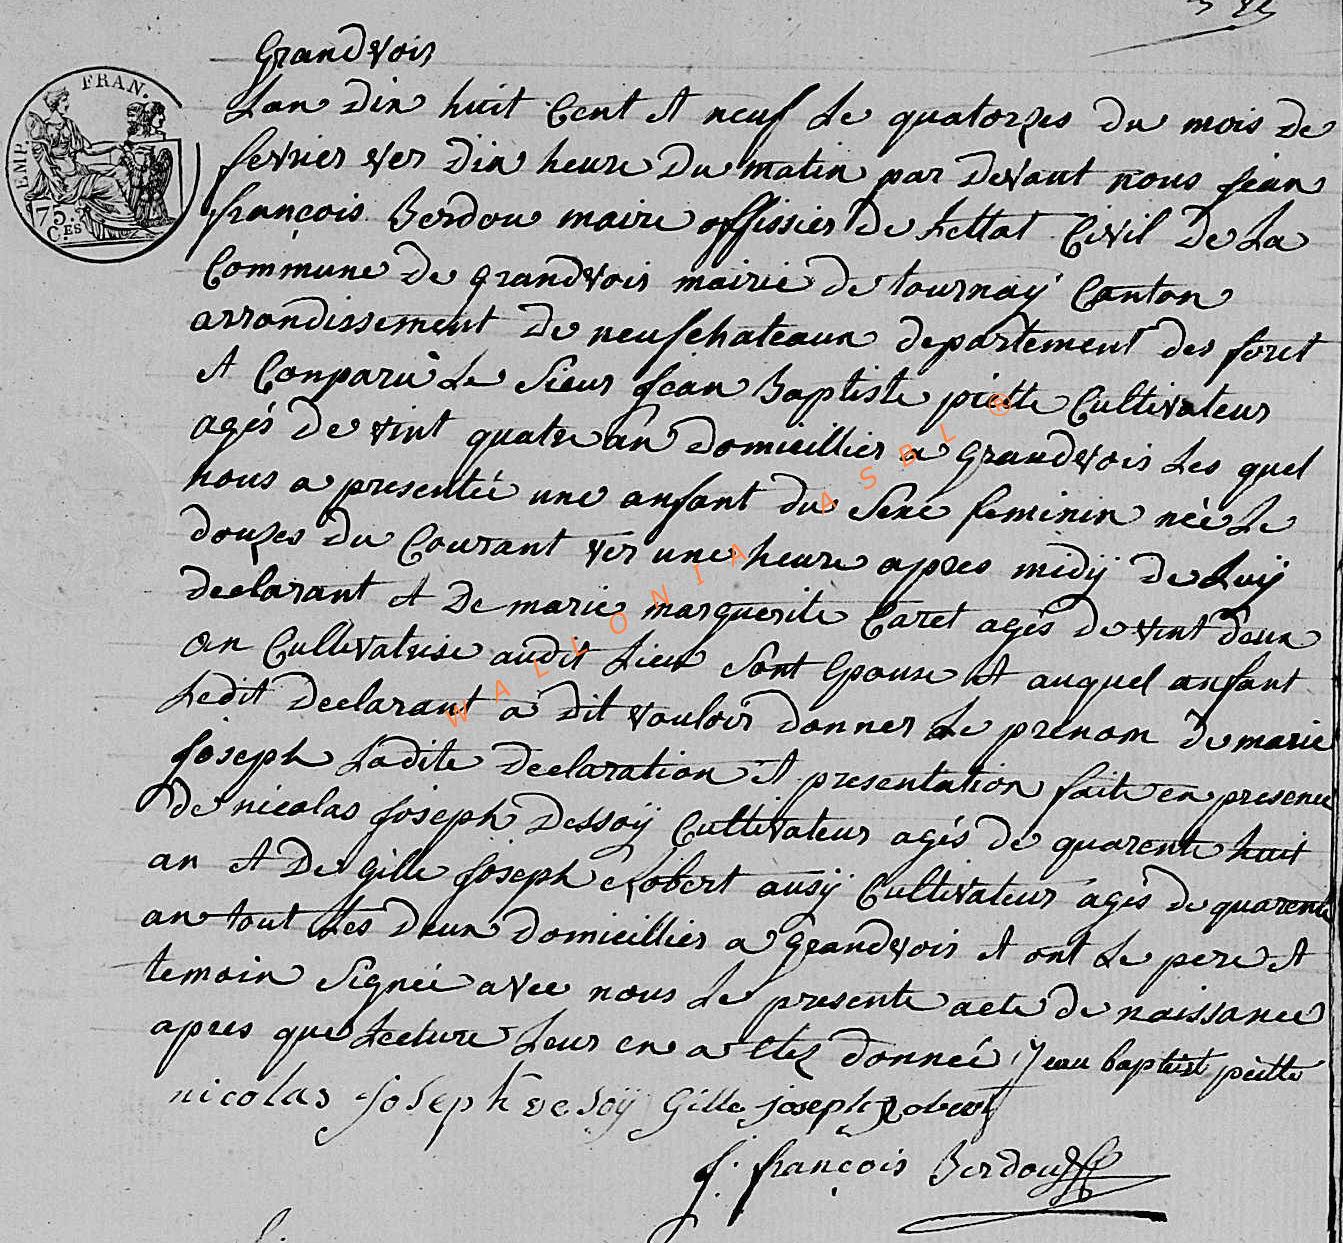 Grandvois
Lan dix huit Cent et neuf Le quatorzes du mois de
fevrier ver dix heure Du matin par devant nous jean
françois Berdou maire offissier de Lettat Civil De La
Commune De grandvois mairie de tournaÿ Canton
arrondissement De neufchateaux departement des foret
et Conparu Le Sieur Jean Baptiste piette Cultivateur
agés de vint quatre an domicillier a grandvois Les quel
nous a presentéé une anfant du Sexe feminin néé Le
douzes du Courant ver une heure apres midÿ de Luÿ
declarant et De marie marguerite Caret agés de vint deux
an Cultivatrise audit Lieu Sont Epouse et auquel anfant
Ledit Declarant a dit vouloir donner Le prenom de marie
joseph Ladite declaration et presentation faite en presence
de nicolas joseph Dessoÿ Cultivateur agés de quarente huit
an et De gille joseph Robert ausÿ Cultivateur agés de quarente
an tout Les deux domicillier a grandvois et ont Le pere et
temoin Signéé avec nous Le presente acte de naissance
apres que Lecture Leur en a etez donnéé Jean baptist piette
nicolas joseph deSoÿ Gille joseph Robert
j. françois Berdou
FRAN.
EMP.
75.
C.ES
WALLONIA ASBL ®